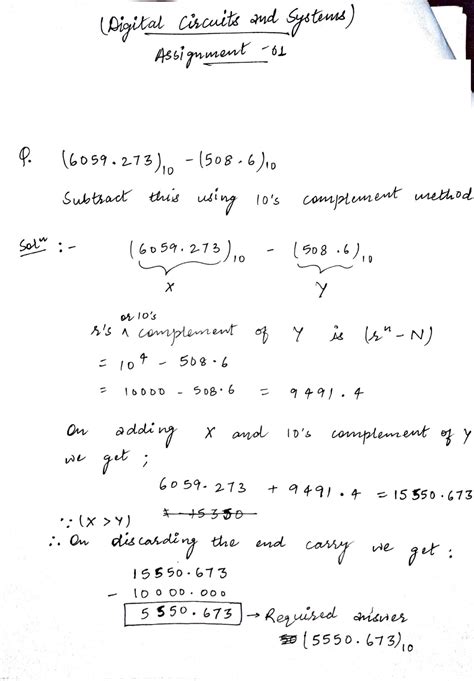 (Digital Circuits and Systems)
Assignment - 01
Q. (6059.273)₁₀ - (508.6)₁₀
Subtract this using 10's complement method
Solⁿ :- (6059.273)₁₀ - (508.6)₁₀
X Y
or 10's
r's ^ complement of Y is (rⁿ - N)
= 10⁴ - 508.6
= 10000 - 508.6 = 9491.4
On adding X and 10's complement of Y
we get ;
6059.273 + 9491.4 = 15550.673
∵ (X > Y)
∴ On discarding the end carry we get :
15550.673
- 10000.000
5550.673 → Required answer
(5550.673)₁₀